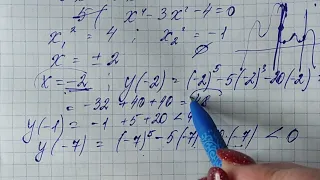 5( x⁴ - 3x² - 4 = 0
x₁² = 4 ; x₂² = -1
x = ± 2 ∅
x = -2 ; y(-2) = (-2)⁵ - 5(-2)³ - 20(-2) =
= -32 + 40 + 40 =
y(-1) = -1 + 5 + 20 < 4
y(-7) = (-7)⁵ - 5(-7) < 0